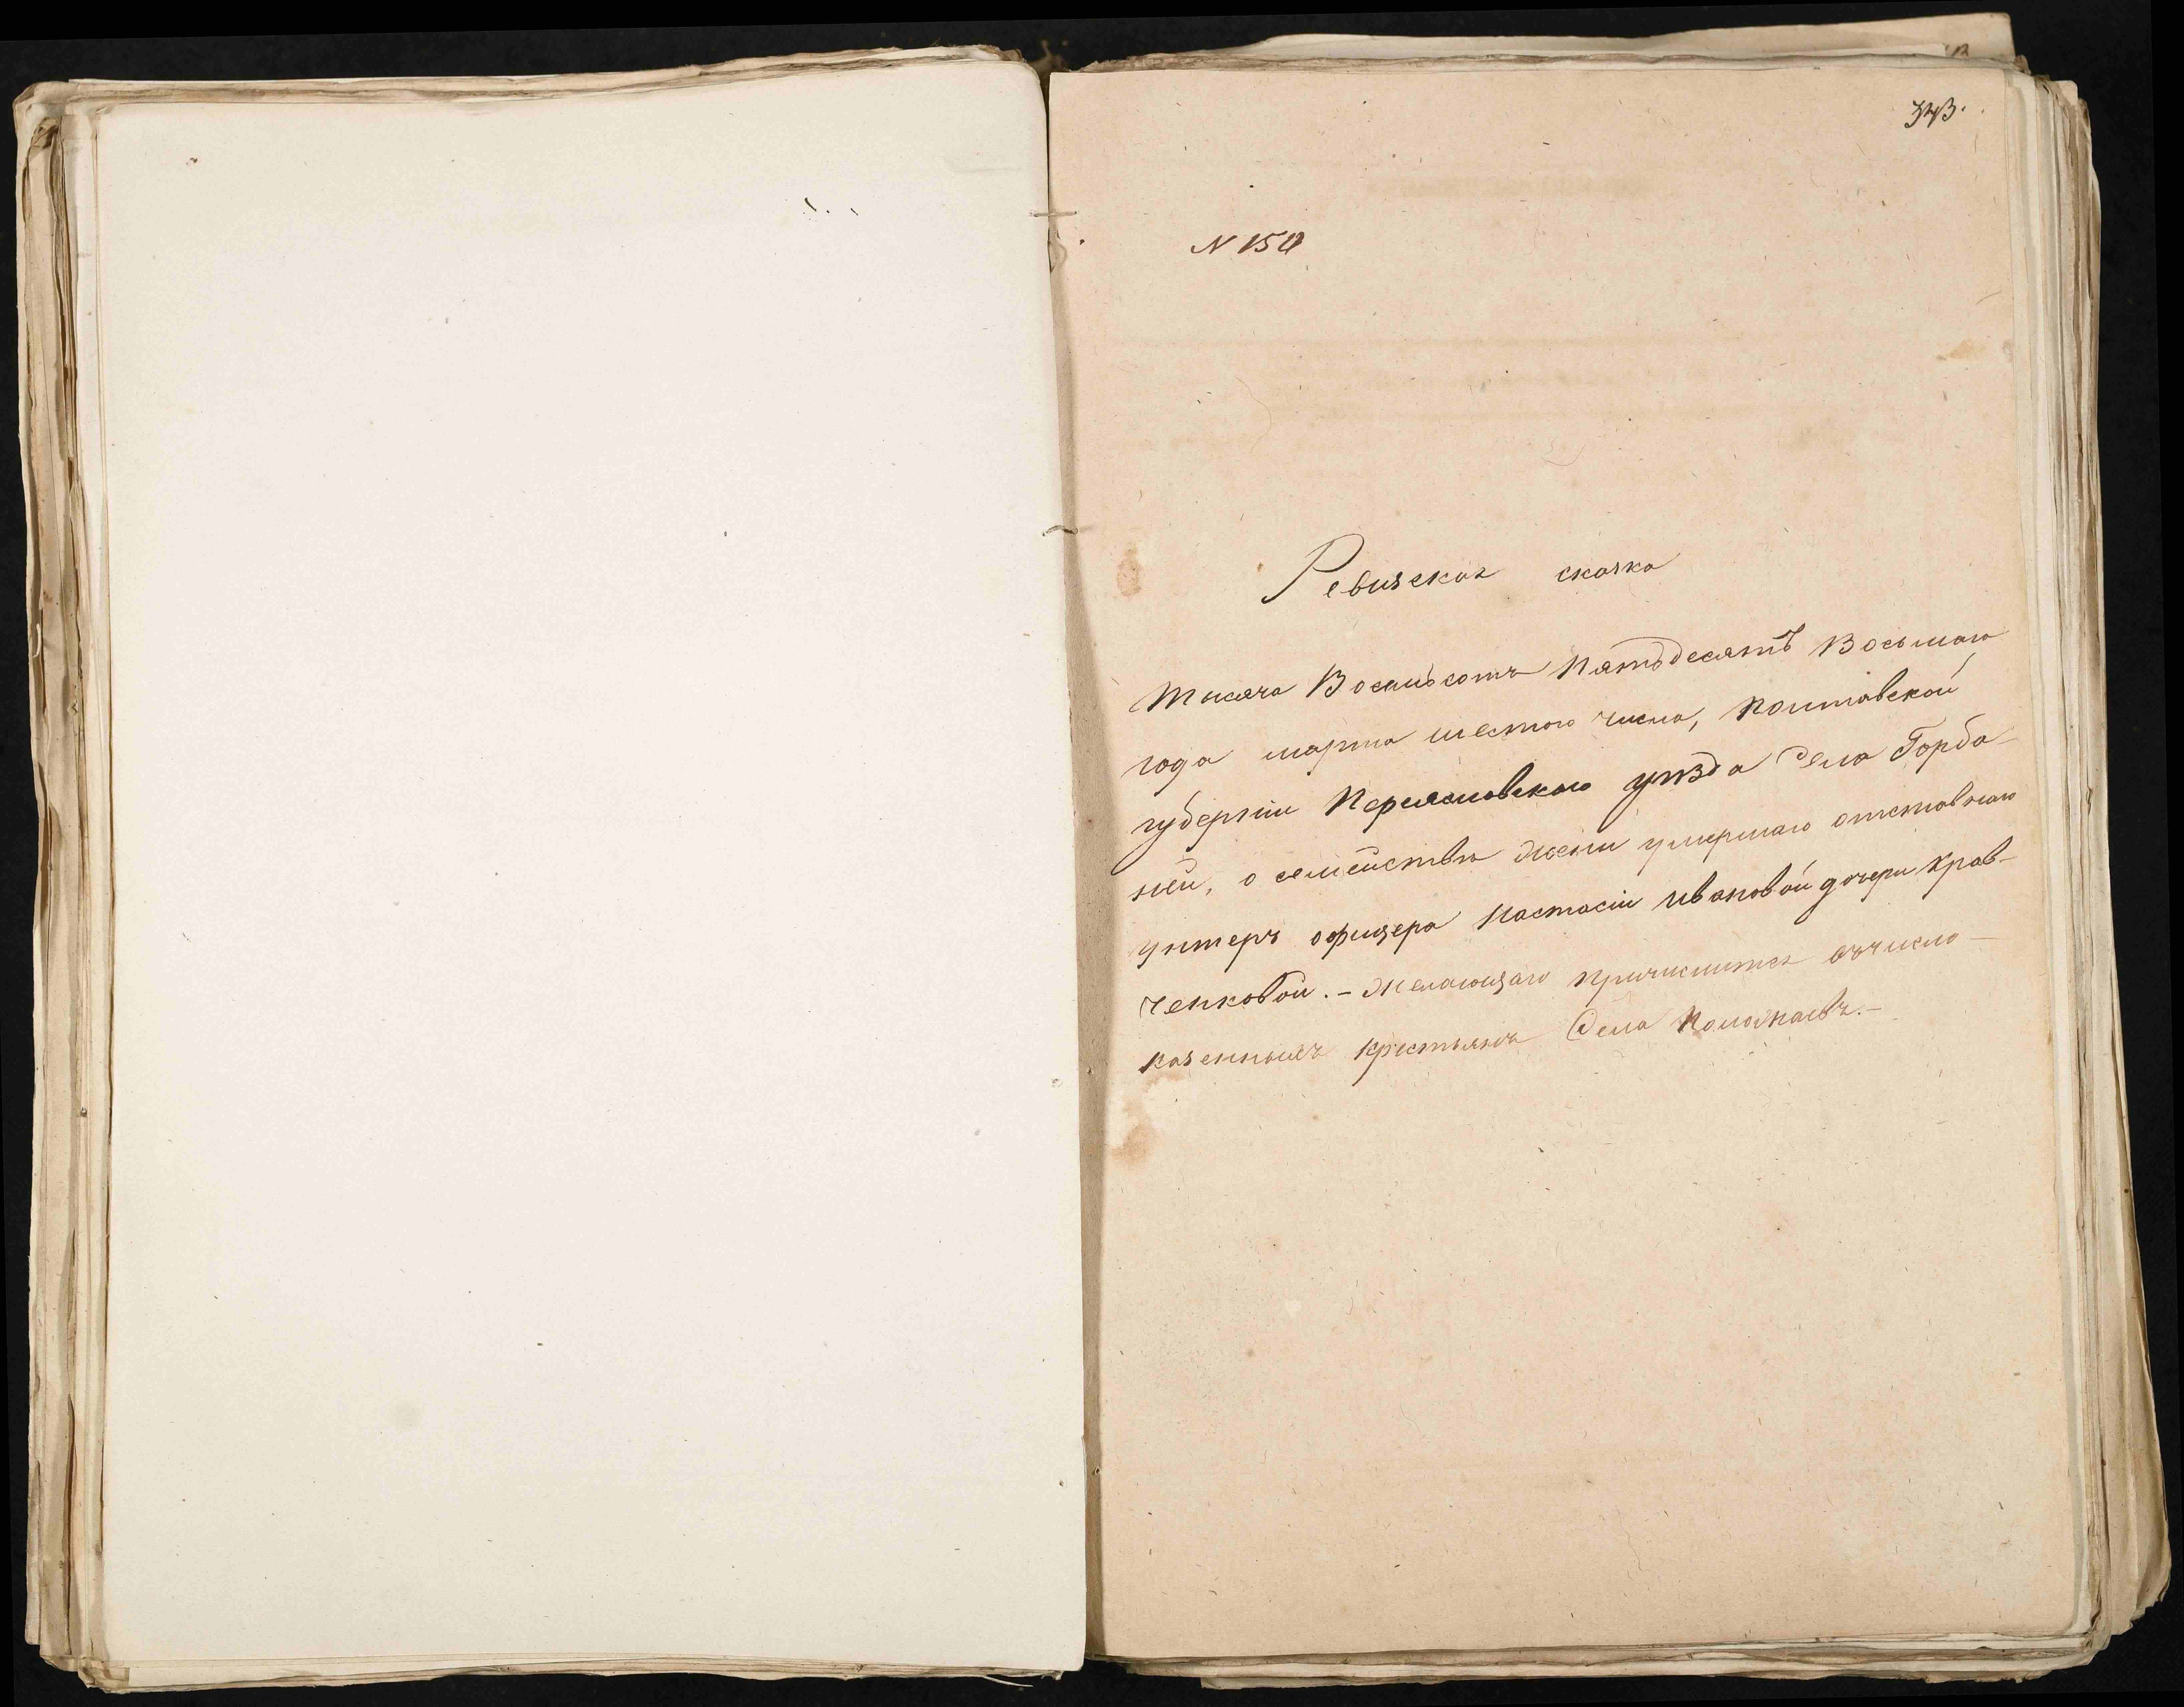 343.
N 150
Ревизская сказка
Тысяча Восемьсотъ Пятьдесятъ Восьмаго
года марта шестого числа, Полтавской
губерніи Переясловского уѣзда села Горба-
ней, о семействѣ жены умершаго отставнаго
унтеръ офицера Настасіи Ивановой дочери Крав-
ченковой. – Желающаго причислится въ число –
казенныхъ крестьянъ Села